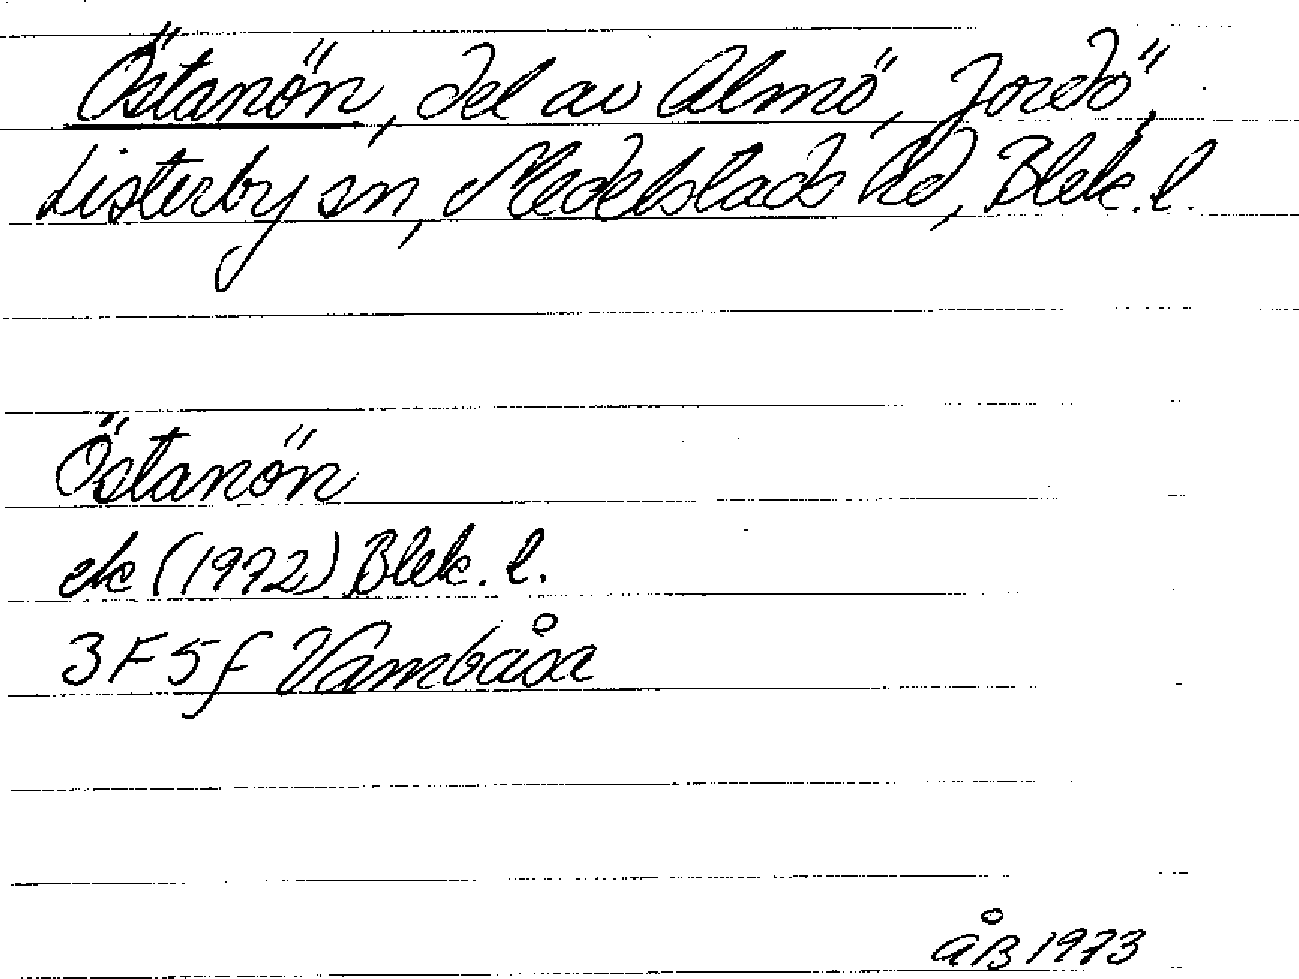 Östanön, del av Almö, Jordö,
Listerby sn, Medelstads hd, Blek. l.
Östanön
ek (1972) Blek. l.
3F5f Vambåsa
ÅB 1973